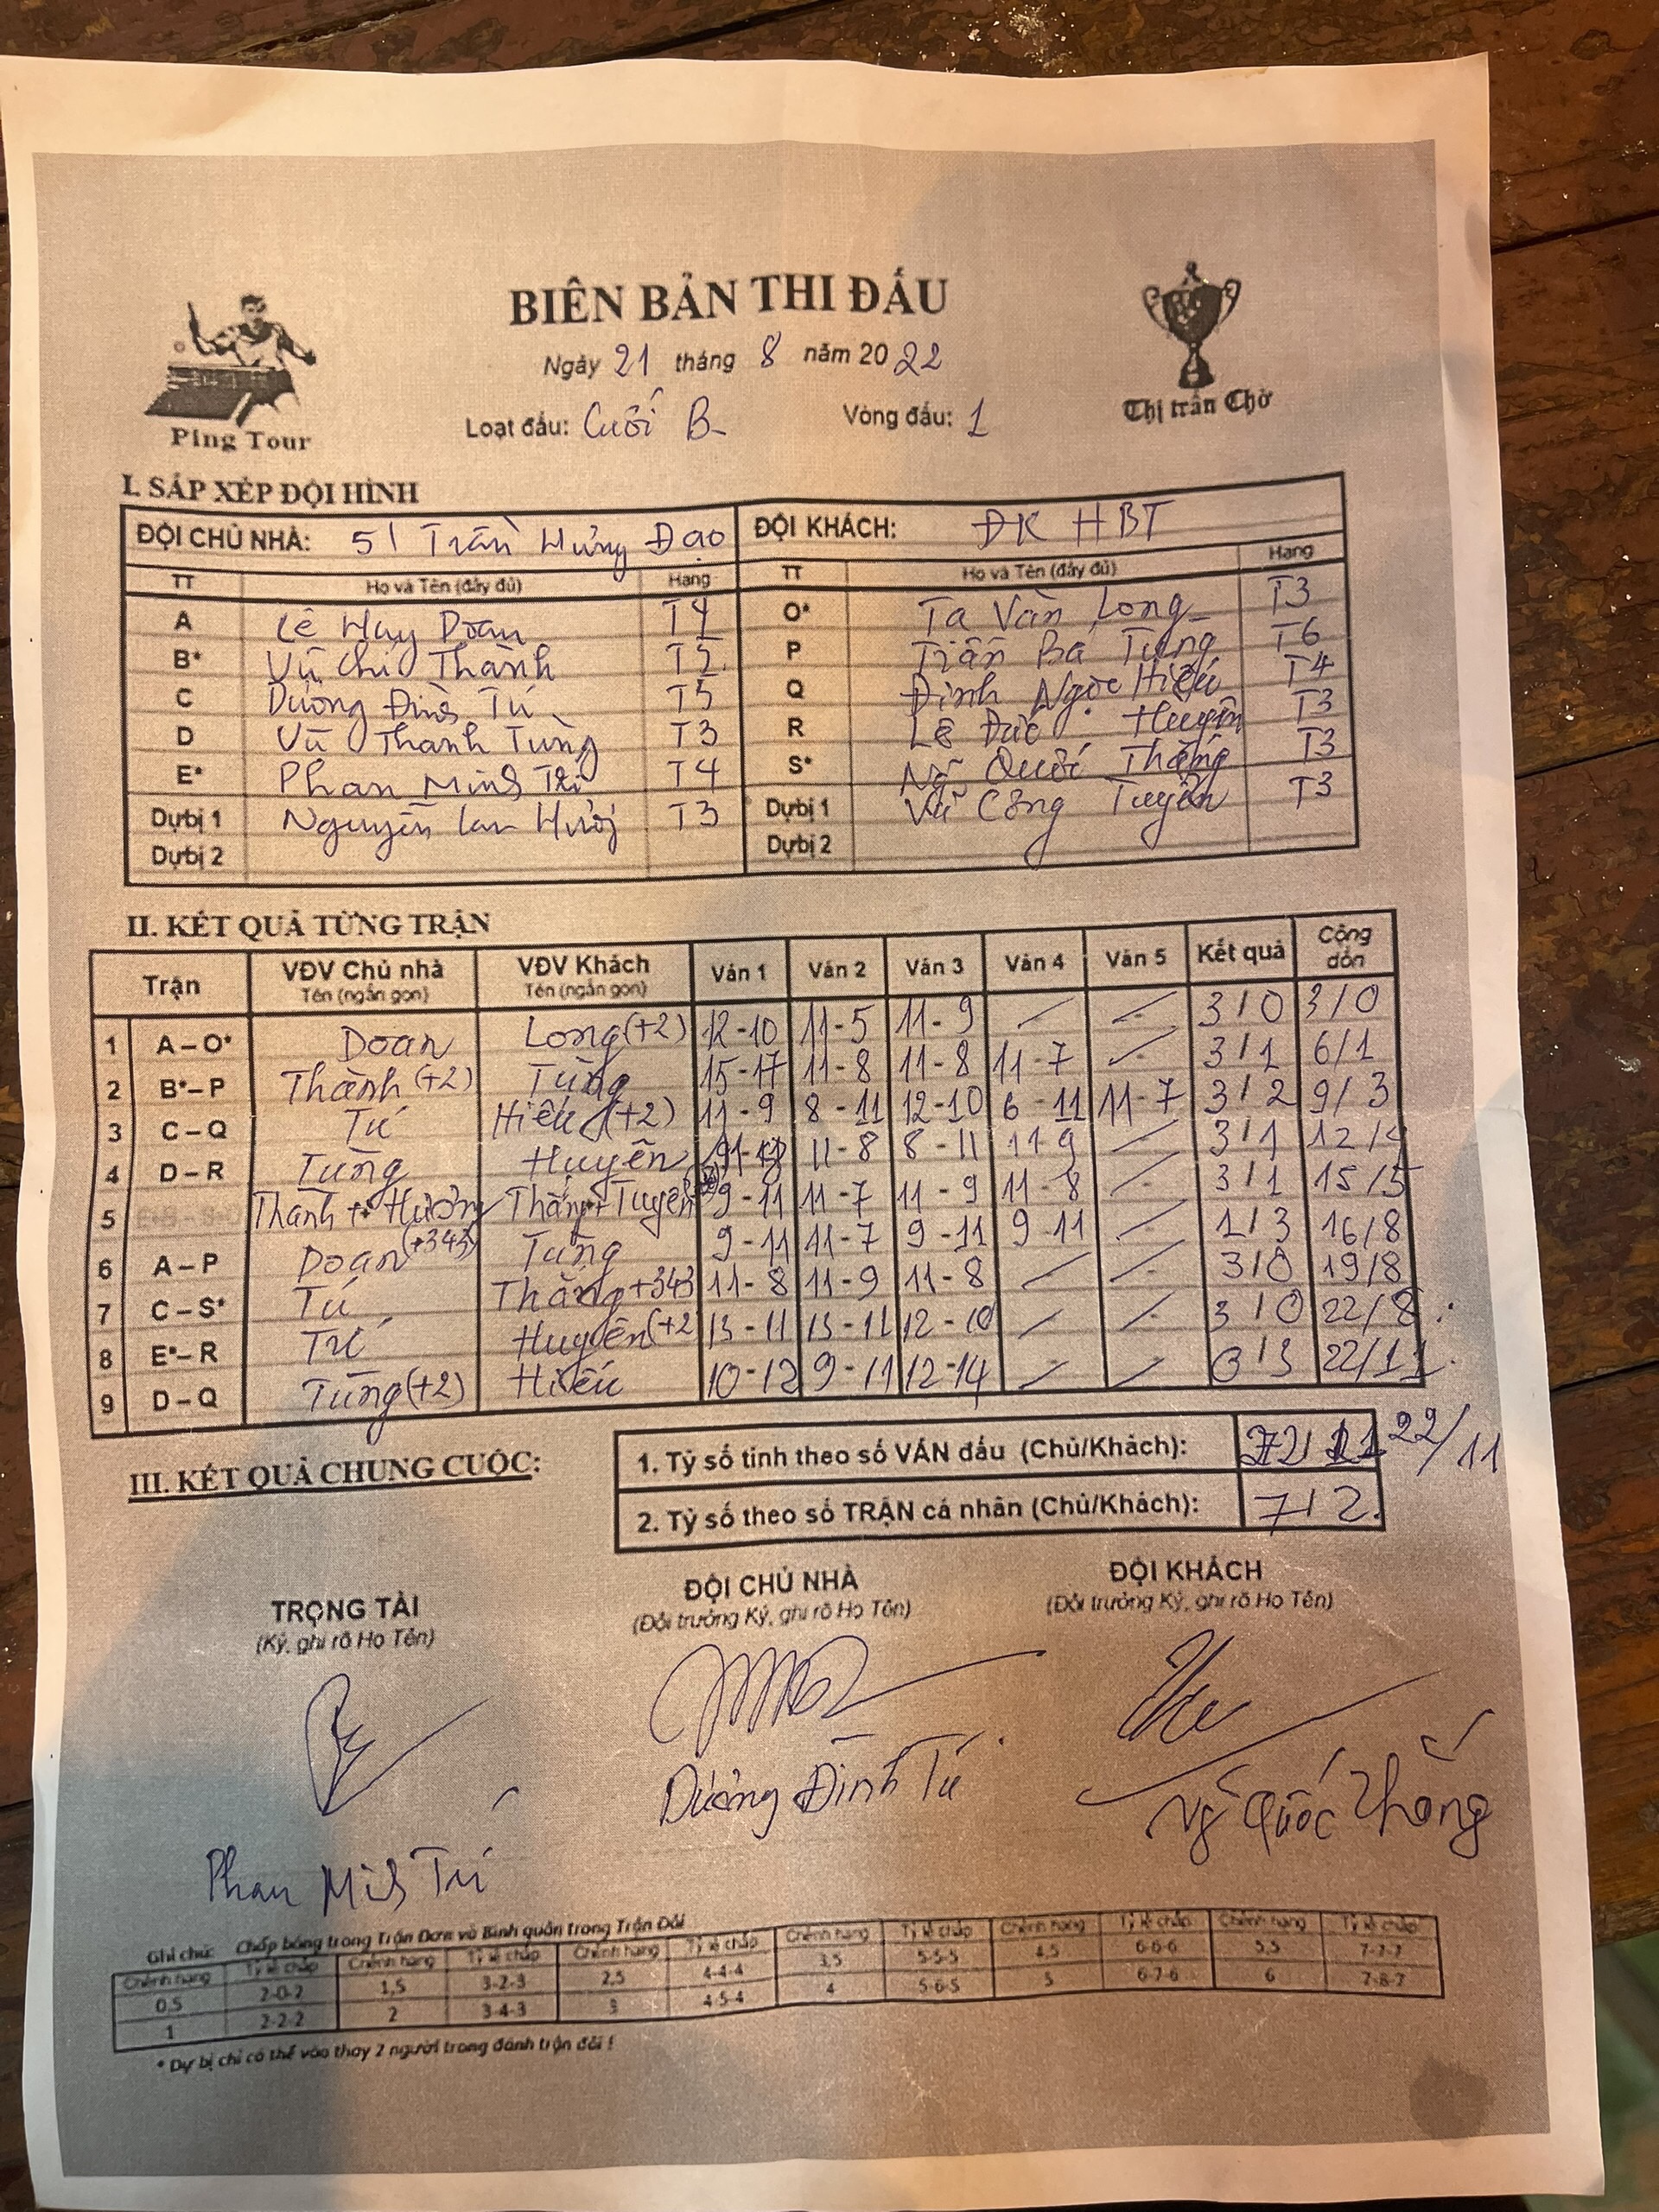 BIÊN BẢN THI ĐẤU
Ngày 21 tháng 8 năm 2022
Loạt đấu: Cuối B Vòng đấu: 1
Ping Tour
Thị trấn Chờ
I. SẮP XẾP ĐỘI HÌNH
ĐỘI CHỦ NHÀ: 51 Trần Hưng Đạo ĐỘI KHÁCH: ĐK HBT
TT Họ và Tên (đầy đủ) Hạng TT Họ và Tên (đầy đủ) Hạng
A Lê Huy Doan T4 O* Tạ Văn Long T3
B* Vũ Chí Thành T2 P Trần Bá Tùng T6
C Dương Đình Tú T5 Q Đinh Ngọc Hiếu T4
D Vũ Thanh Tùng T3 R Lê Đức Huyên T3
E* Phan Minh Trí T4 S* Ng Quốc Thắng T3
Dự bị 1 Nguyễn Lan Hương T3 Dự bị 1 Vũ Công Tuyên T3
Dự bị 2 Dự bị 2
II. KẾT QUẢ TỪNG TRẬN
Trận VĐV Chủ nhà Tên (ngắn gọn) VĐV Khách Tên (ngắn gọn) Ván 1 Ván 2 Ván 3 Ván 4 Ván 5 Kết quả Cộng dồn
1 A – O* Doan Long (+2) 12-10 11-5 11-9 3/0 3/0
2 B* – P Thành (+2) Tùng 15-17 11-8 11-8 11-7 3/1 6/1
3 C – Q Tú Hiếu (+2) 11-9 8-11 12-10 6-11 11-7 3/2 9/3
4 D – R Tùng Huyên 11-8 8-11 11-9 3/1 12/4
5 Thành + Hương Thắng + Tuyên 9-11 11-7 11-9 11-8 3/1 15/5
6 A – P Doan (+343) Tùng 9-11 11-7 9-11 9-11 1/3 16/8
7 C – S* Tú Thắng +343 11-8 11-9 11-8 3/0 19/8
8 E* – R Trí Huyên (+2 13-11 13-11 12-10 3/0 22/8
9 D – Q Tùng (+2) Hiếu 10-12 9-11 12-14 0/3 22/11
III. KẾT QUẢ CHUNG CUỘC:
1. Tỷ số tính theo số VÁN đấu (Chủ/Khách): 22/11
2. Tỷ số theo số TRẬN cá nhân (Chủ/Khách): 7/2
TRỌNG TÀI ĐỘI CHỦ NHÀ ĐỘI KHÁCH
(Ký, ghi rõ Họ Tên) (Đội trưởng Ký, ghi rõ Họ Tên) (Đội trưởng Ký, ghi rõ Họ Tên)
Phan Minh Trí Dương Đình Tú Ng Quốc Thắng
Ghi chú: Chấp bóng trong Trận Đơn và Bình quân trong Trận Đôi
Chênh hạng Tỷ lệ chấp Chênh hạng Tỷ lệ chấp Chênh hạng Tỷ lệ chấp Chênh hạng Tỷ lệ chấp Chênh hạng Tỷ lệ chấp Chênh hạng Tỷ lệ chấp
0,5 2-0-2 1,5 3-2-3 2,5 4-4-4 3,5 5-5-5 4,5 6-6-6 5,5 7-7-7
1 2-2-2 2 3-4-3 3 4-5-4 4 5-6-5 5 6-7-6 6 7-8-7
* Dự bị chỉ có thể vào thay 2 người trong đánh trận đôi !